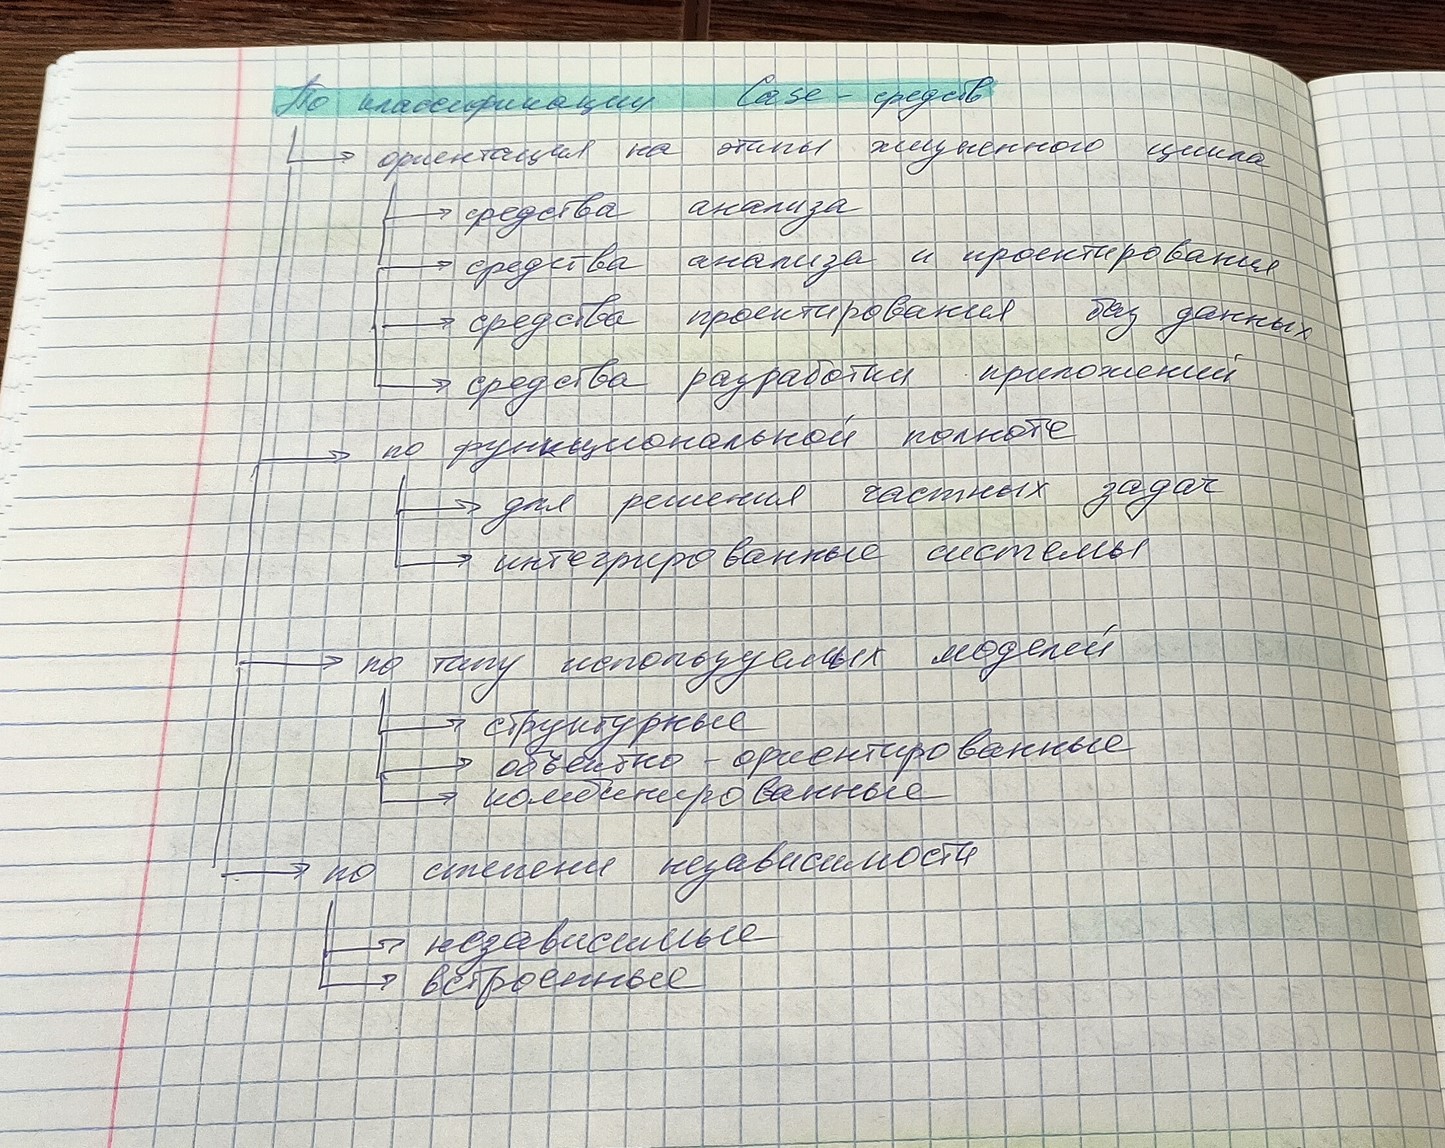 По классификации Case-средств
ориентация на этапы жизненного цикла
средства анализа
средства анализа и проектирования
средства проектирования баз данных
средства разработки приложений
по функциональной полноте
для решения частных задач
интегрированные системы
по типу используемых моделей
структурные
объектно-ориентированные
комбинированные
по степени независимости
независимые
встроенные